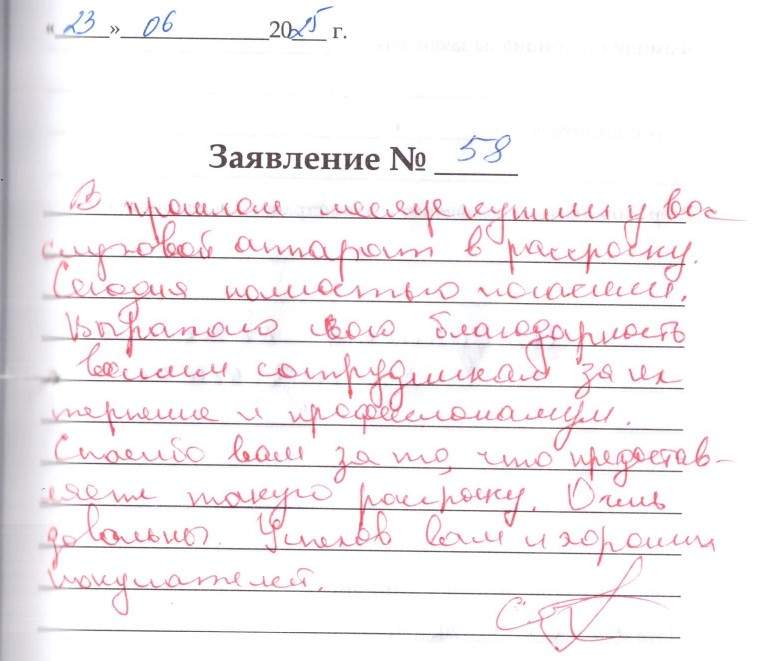 «23» 06 2025 г.
Заявление № 58
В прошлом месяце купили у вас
слуховой аппарат в рассрочку.
Сегодня полностью погасили.
Выражаю свою благодарность
вашим сотрудникам за их
терпение и профессионализм.
Спасибо вам за то, что предостав-
ляете такую рассрочку. Очень
довольны. Успехов вам и хороших
покупателей.